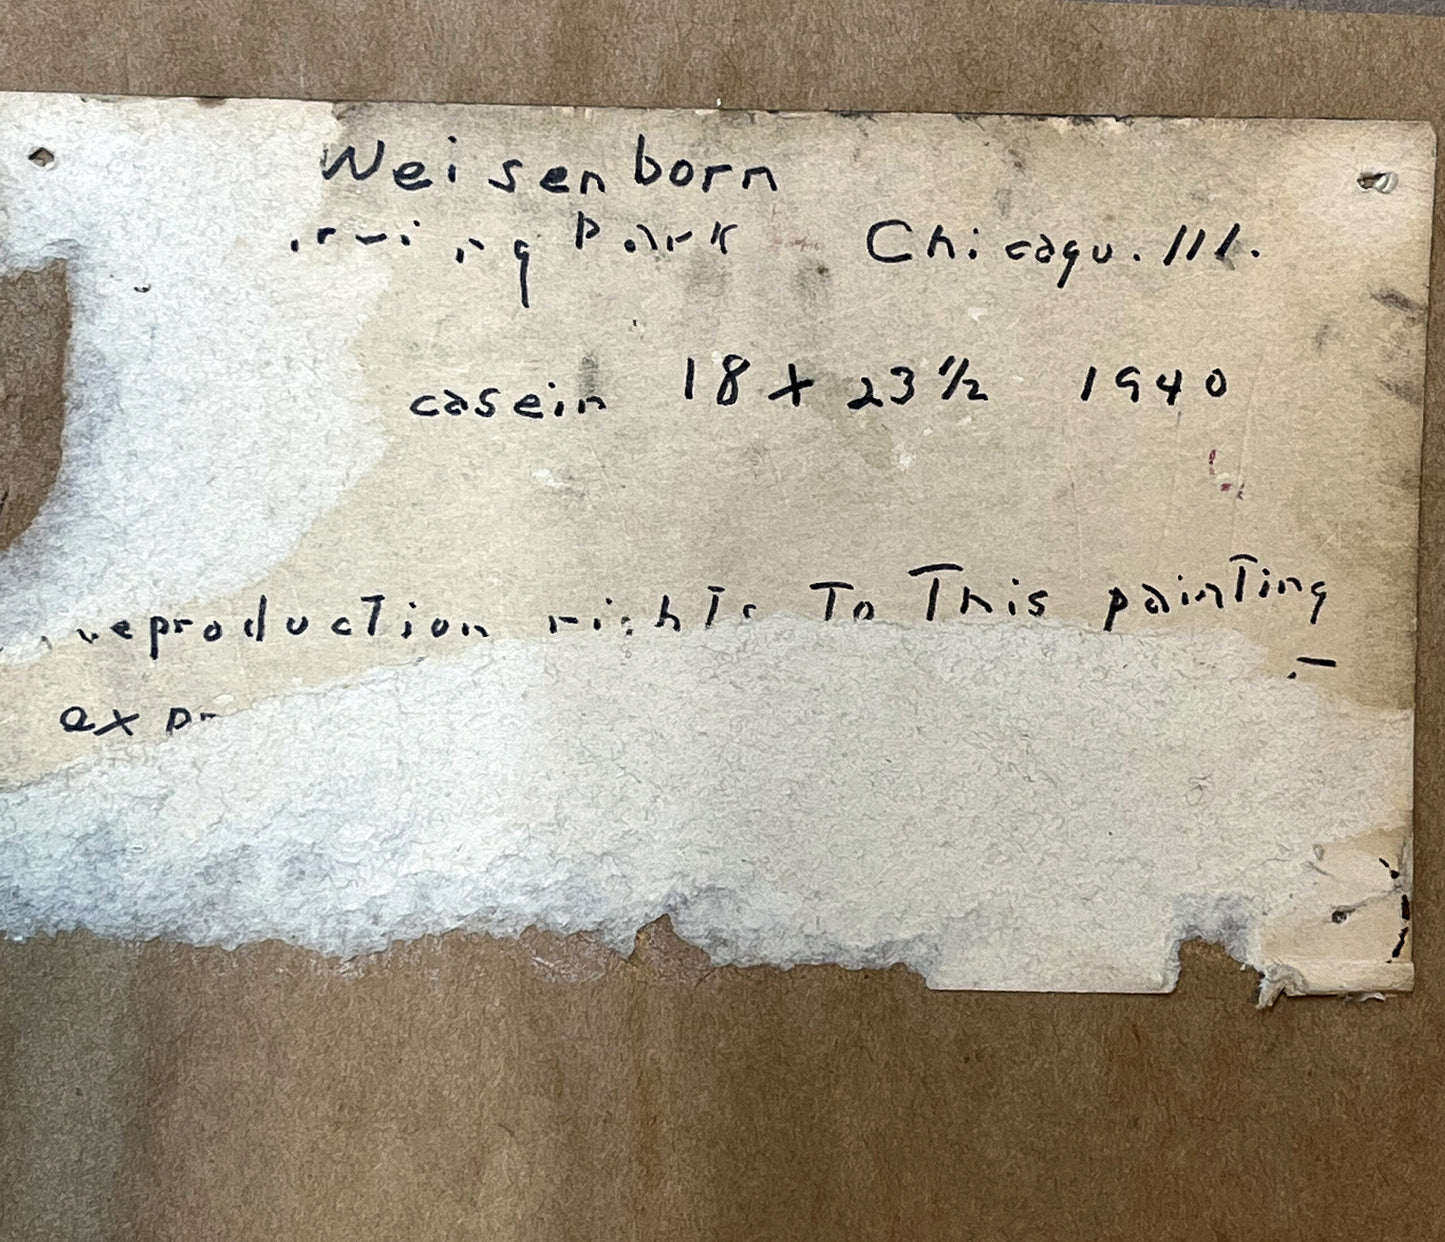 Weisenborn
Irving Park Chicago. Ill.
casein 18 x 23 1/2 1940
reproduction rights To This painting